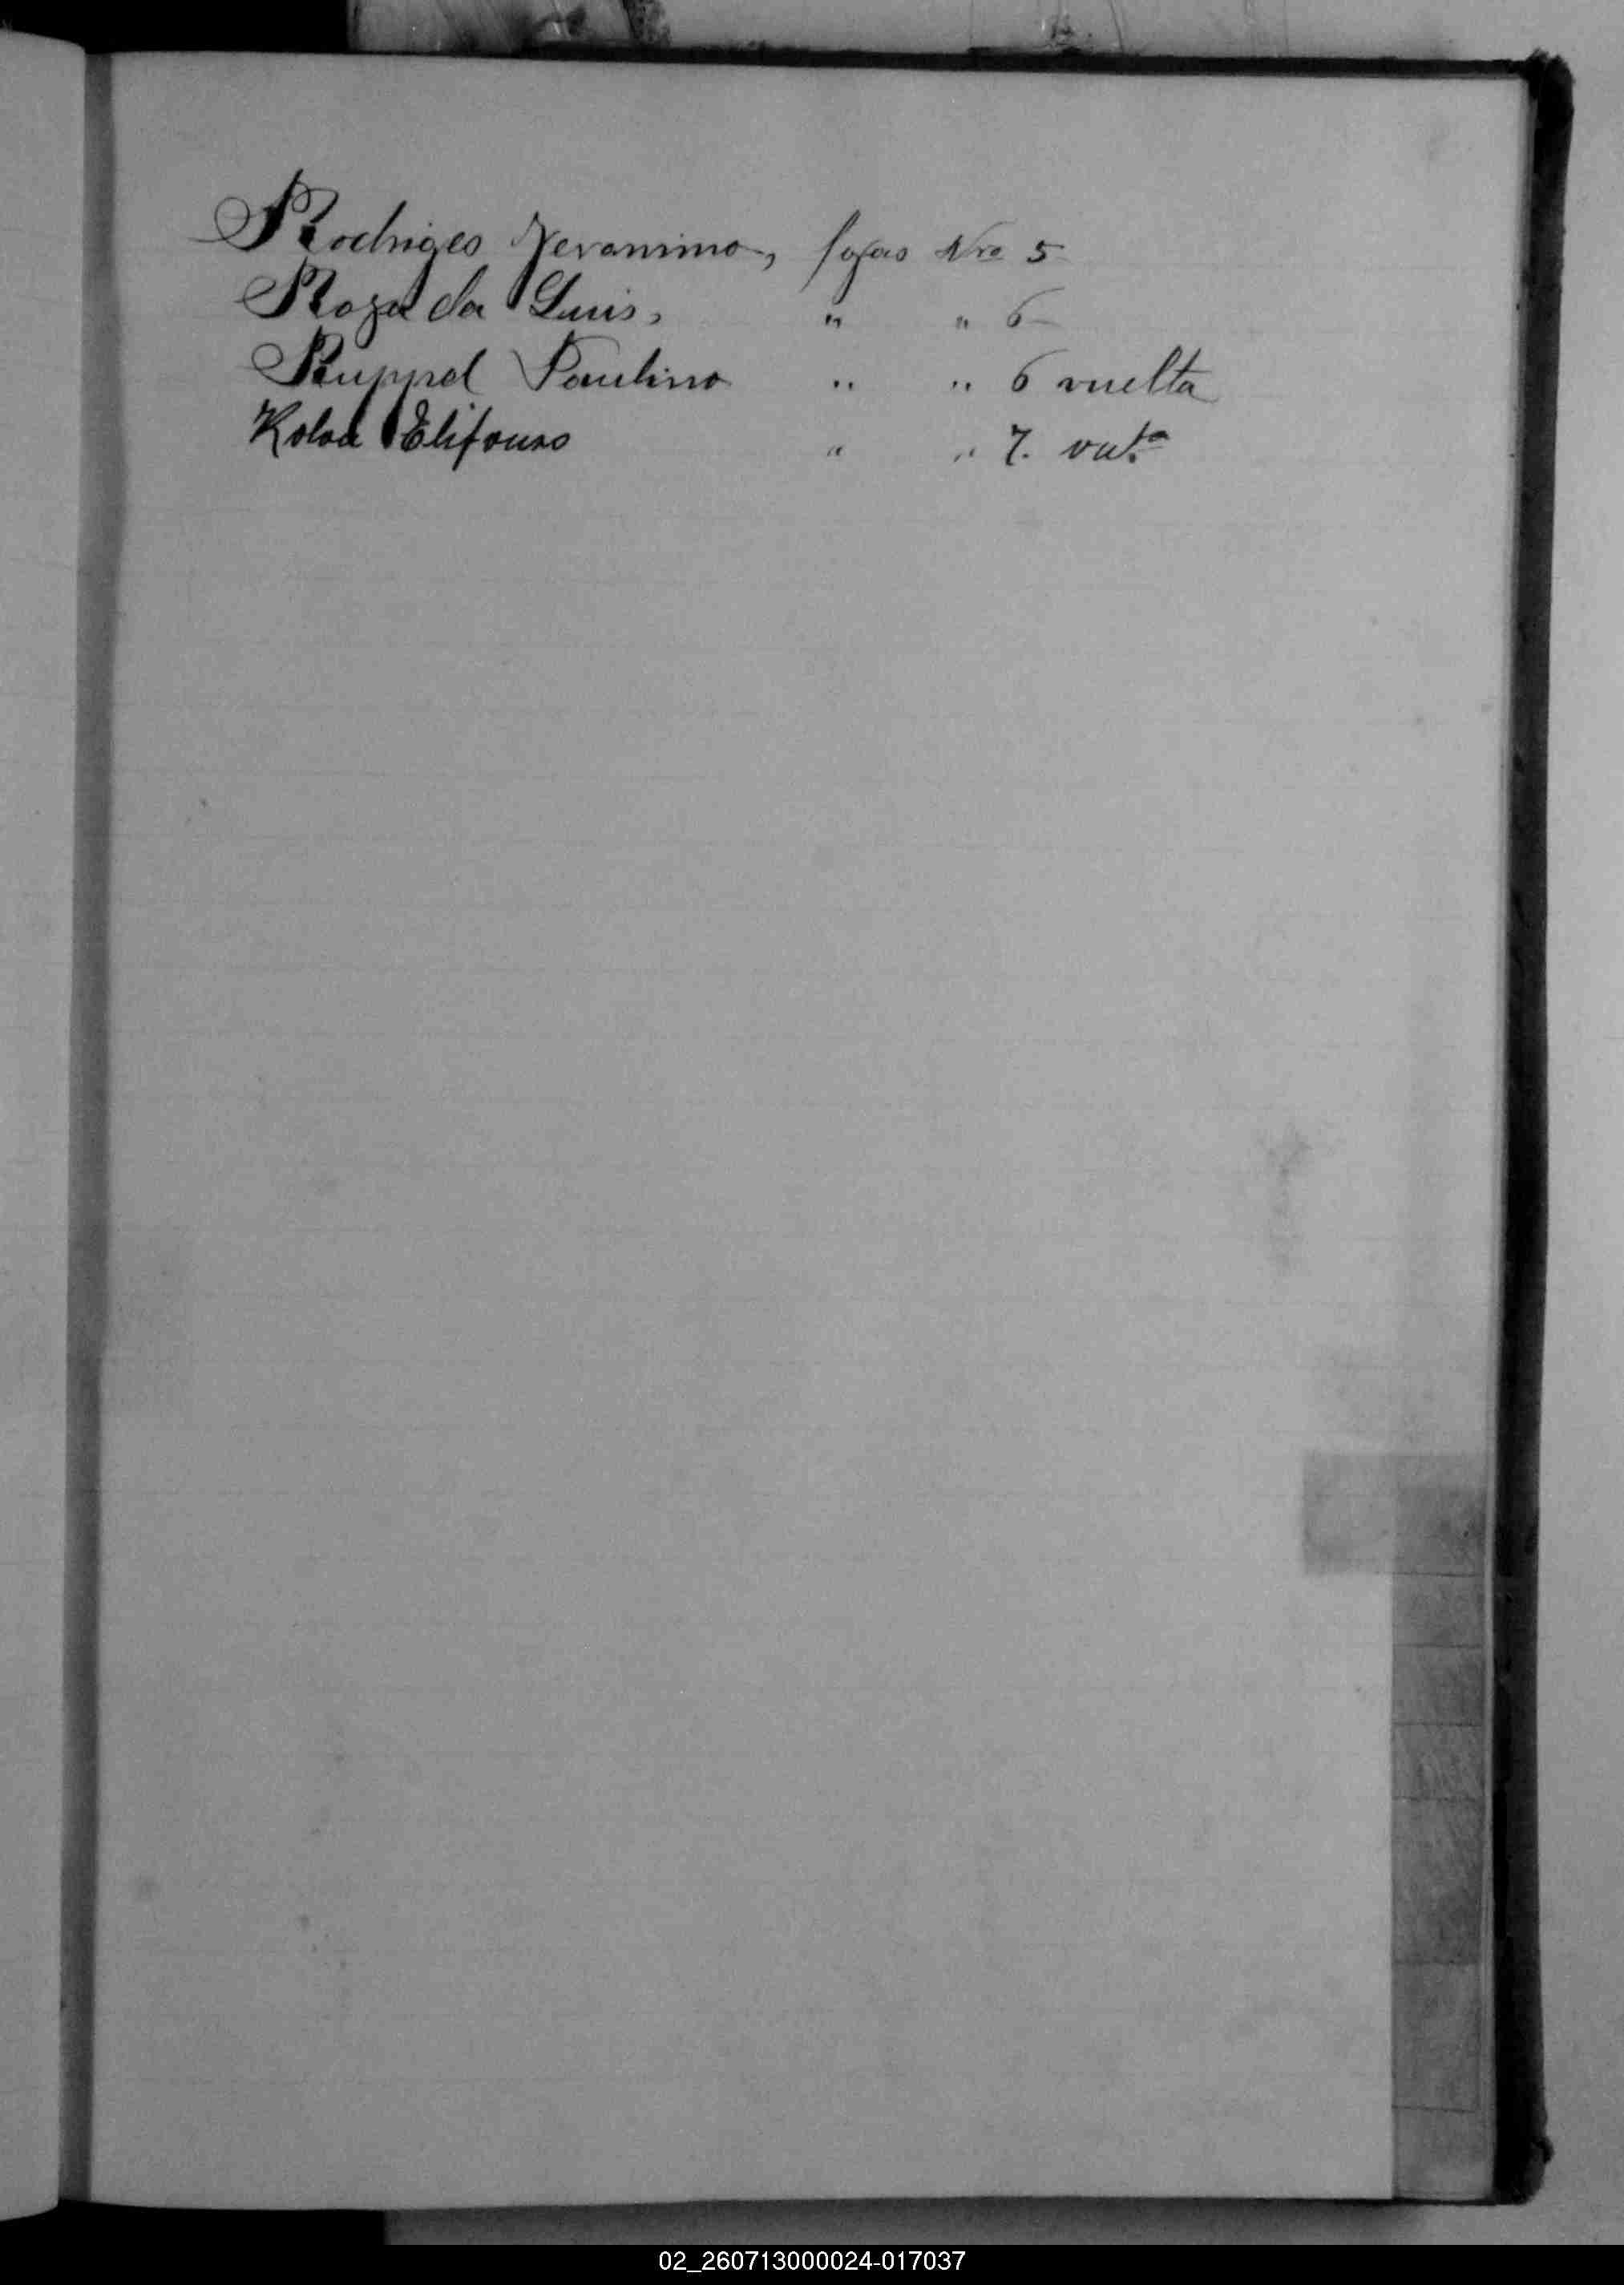 Rodriges Jeronimo, fojas Nro 5
Roza da Luis, " " 6
Ruppel Paulino " " 6 vuelta
" " 7. vuta
02_260713000024-017037